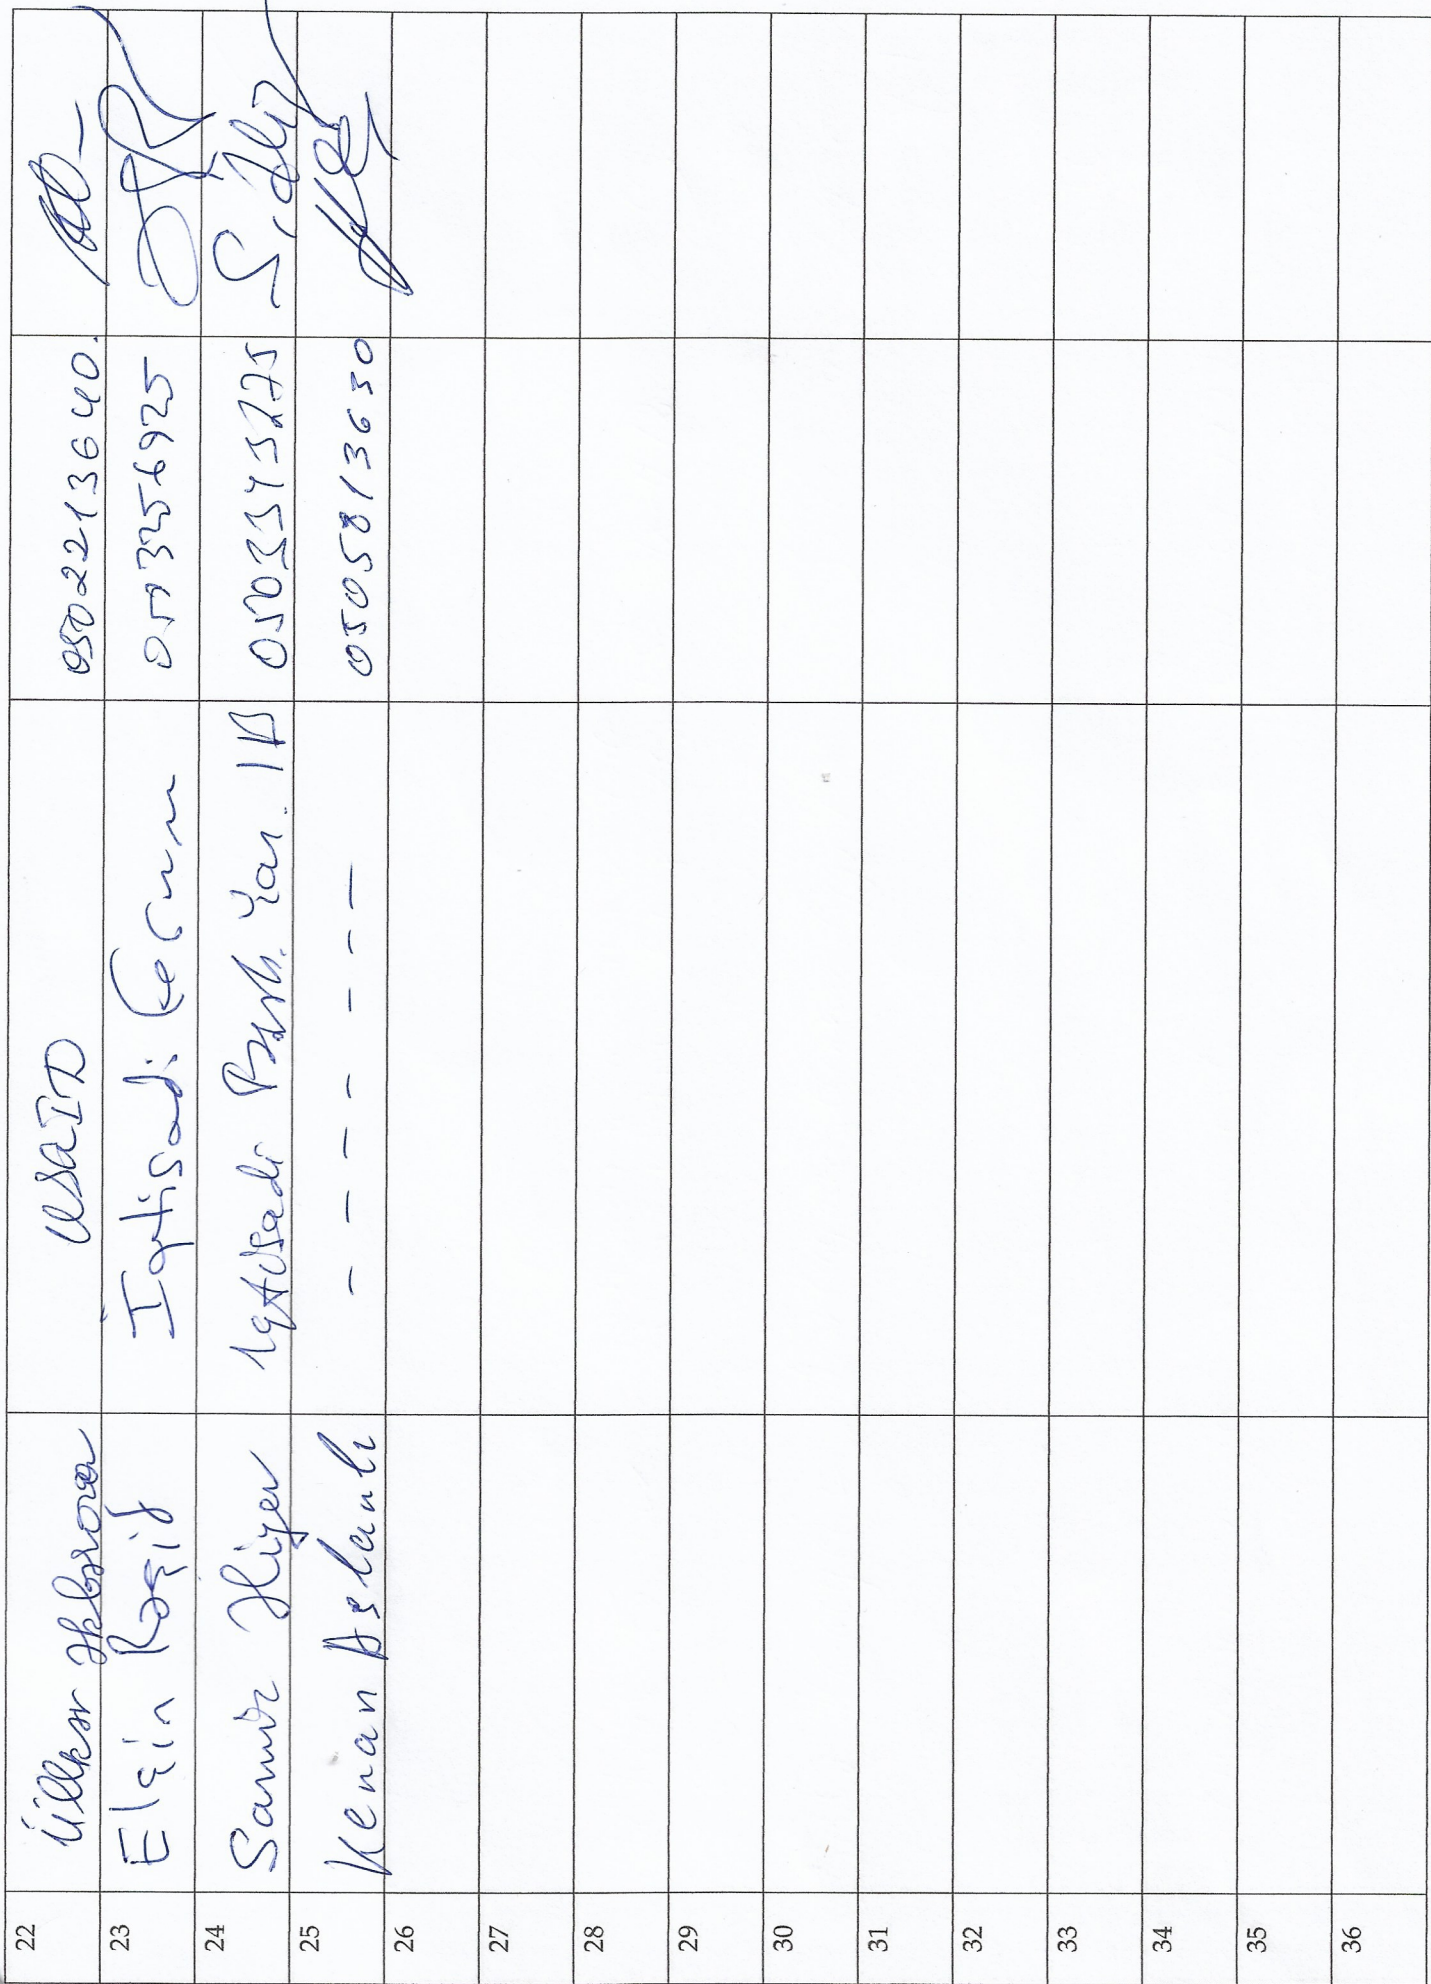 22 Ülkər Əkbərova USAID 0502213640.
23 Elçin Rəşid İqtisadi Forum
24 Samir Əliyev İqtisadi Təşəb. Yar. İB 0503345275
25 Kenan Aslanlı - - - - - - - 0505813630
26
27
28
29
30
31
32
33
34
35
36